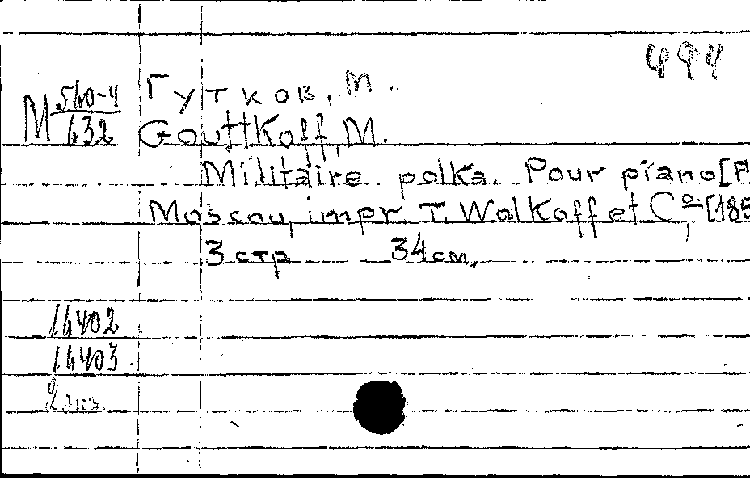 494
Гутков, М.
М 560-4/632
Gouttkoff, M.
Militaire polka. Pour piano [P
Moscou, impr. T. Walkoff et Cº, [185
3 стр 34 см.
16402
16403
2 экз.